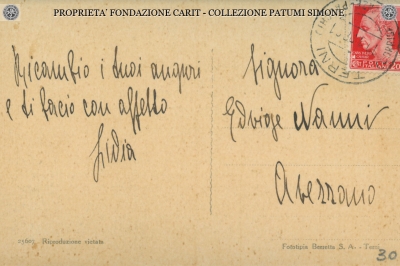 PROPRIETA' FONDAZIONE CARIT - COLLEZIONE PATUMI SIMONE
Ricambio i tuoi auguri
e ti bacio con affetto
Lidia
Signora
Edvige Nanni
Avezzano
TERNI
Riproduzione vietata
Fototipia Benetta S. A. - Terni
30